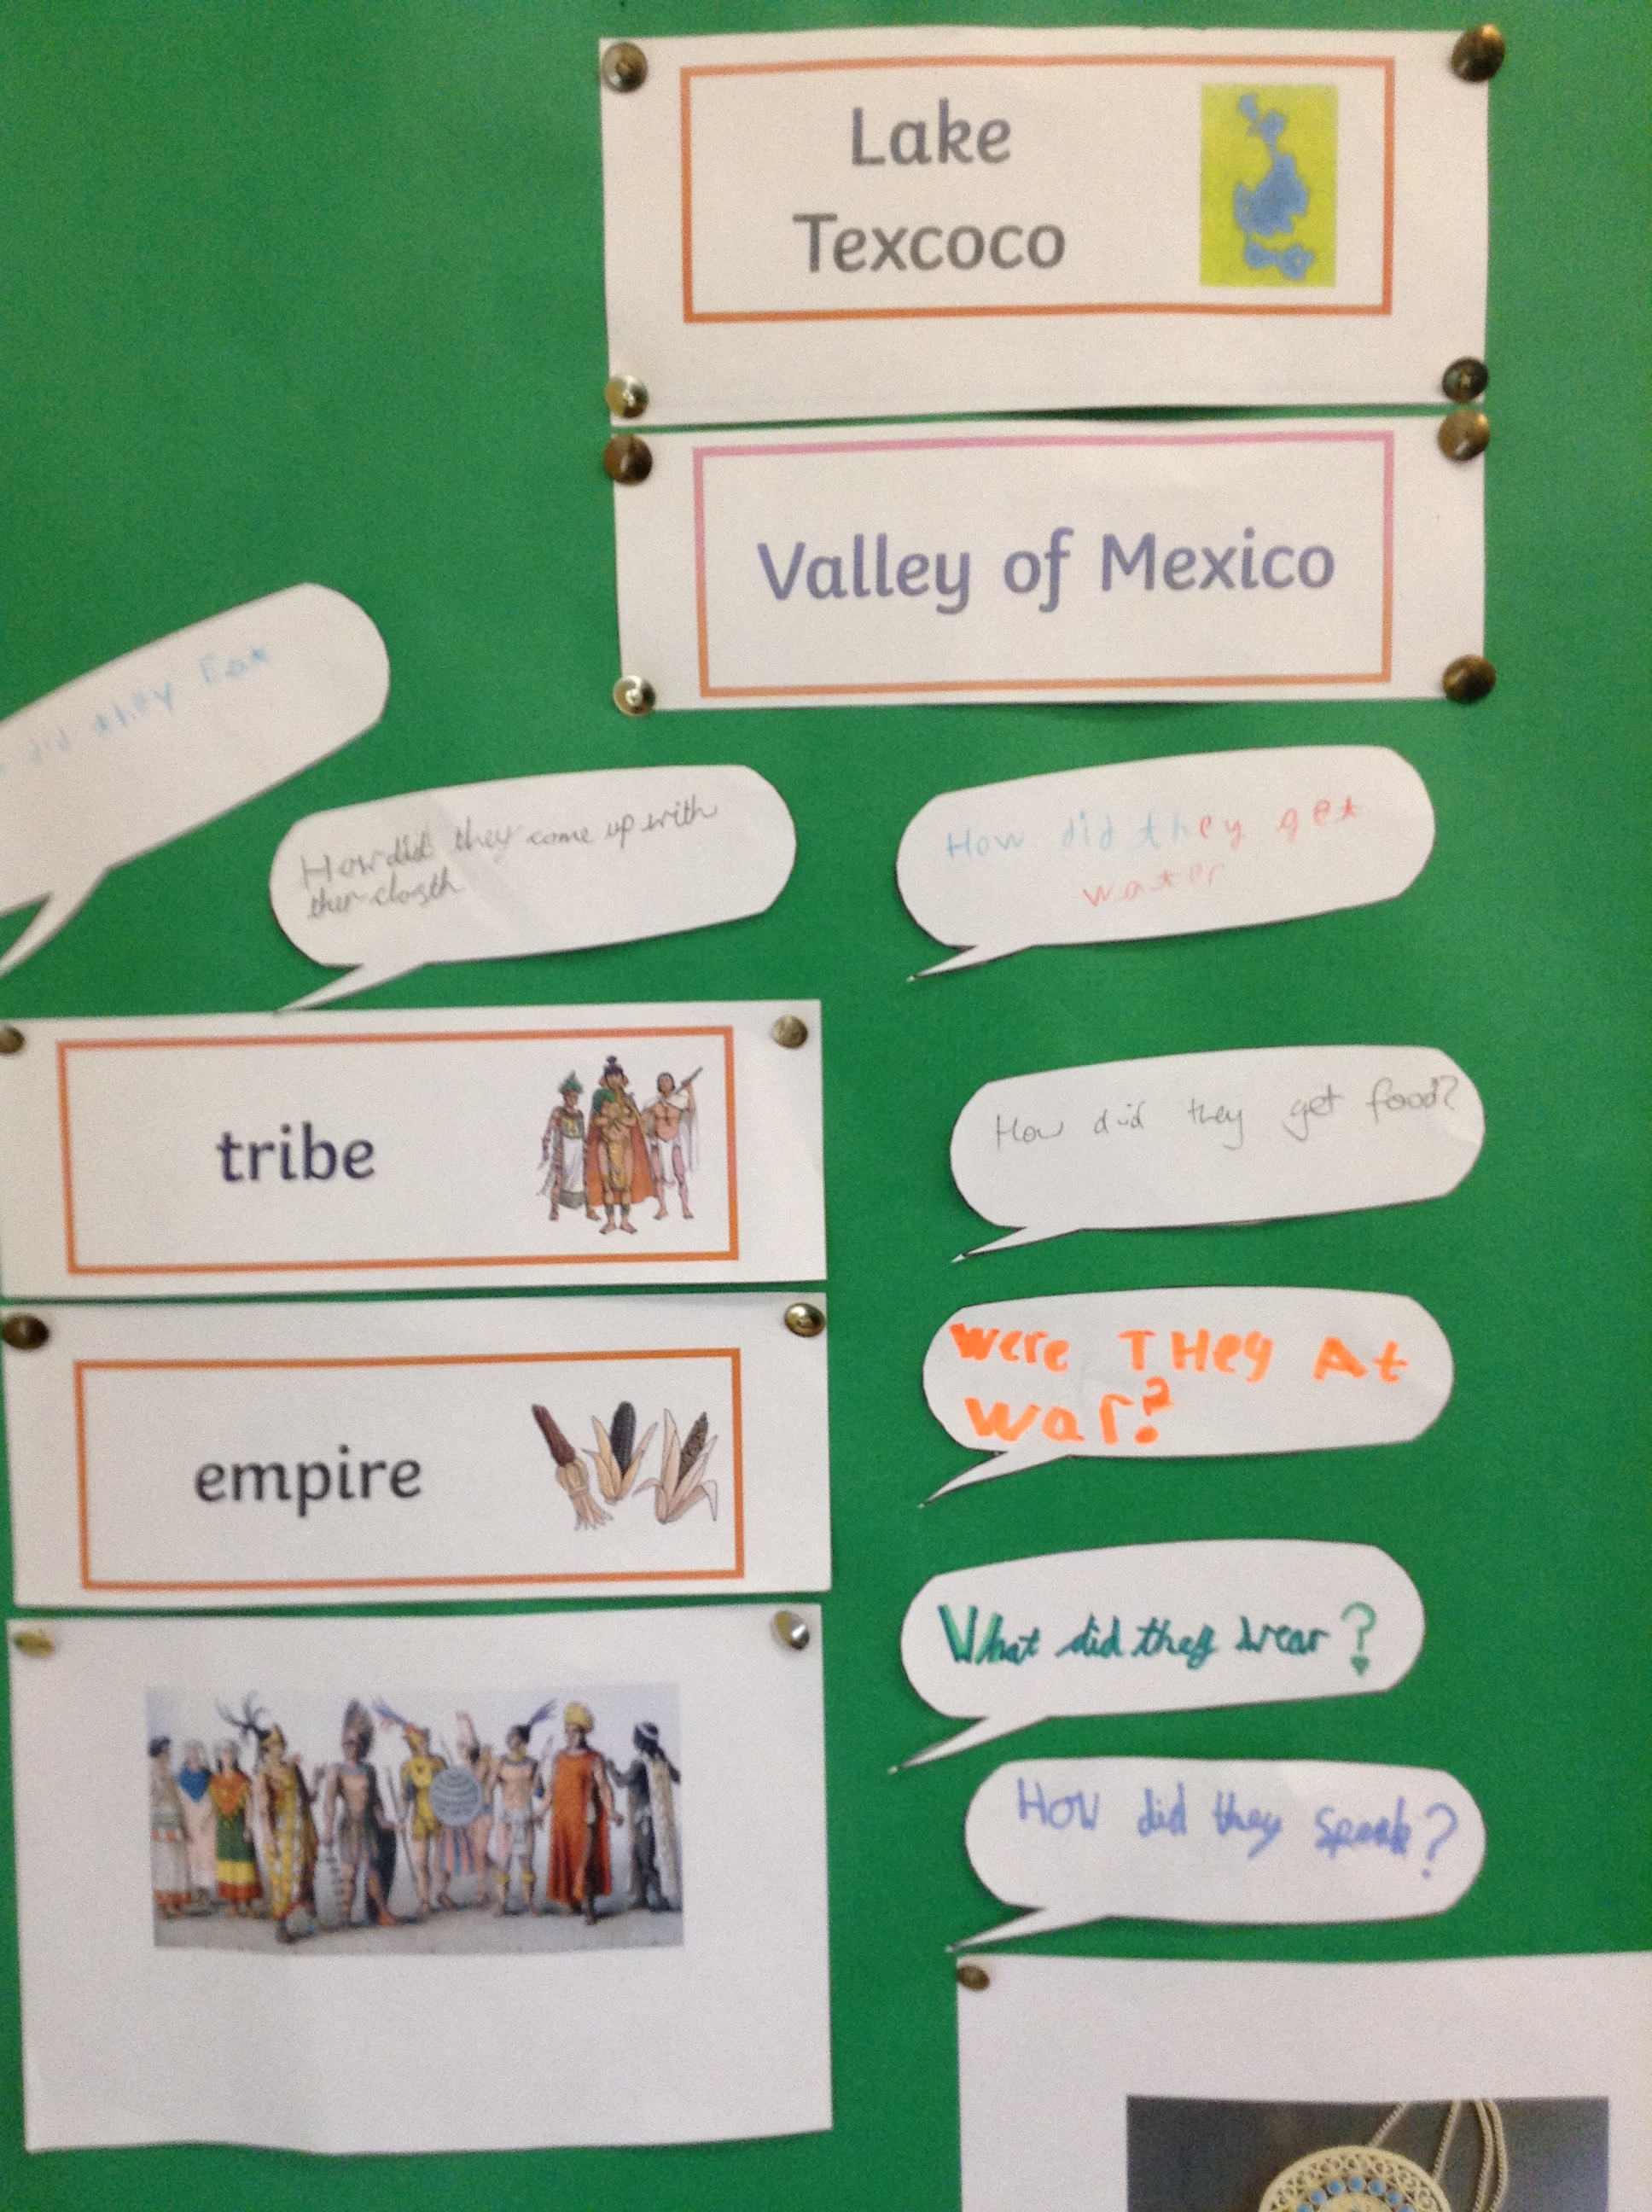 Lake
Texcoco
Valley of Mexico
did they Eat
How did they come up with
ther closth
How did they get
water
tribe
How did they get food?
empire
Were THey At
war?
What did they wear?
How did they speak?